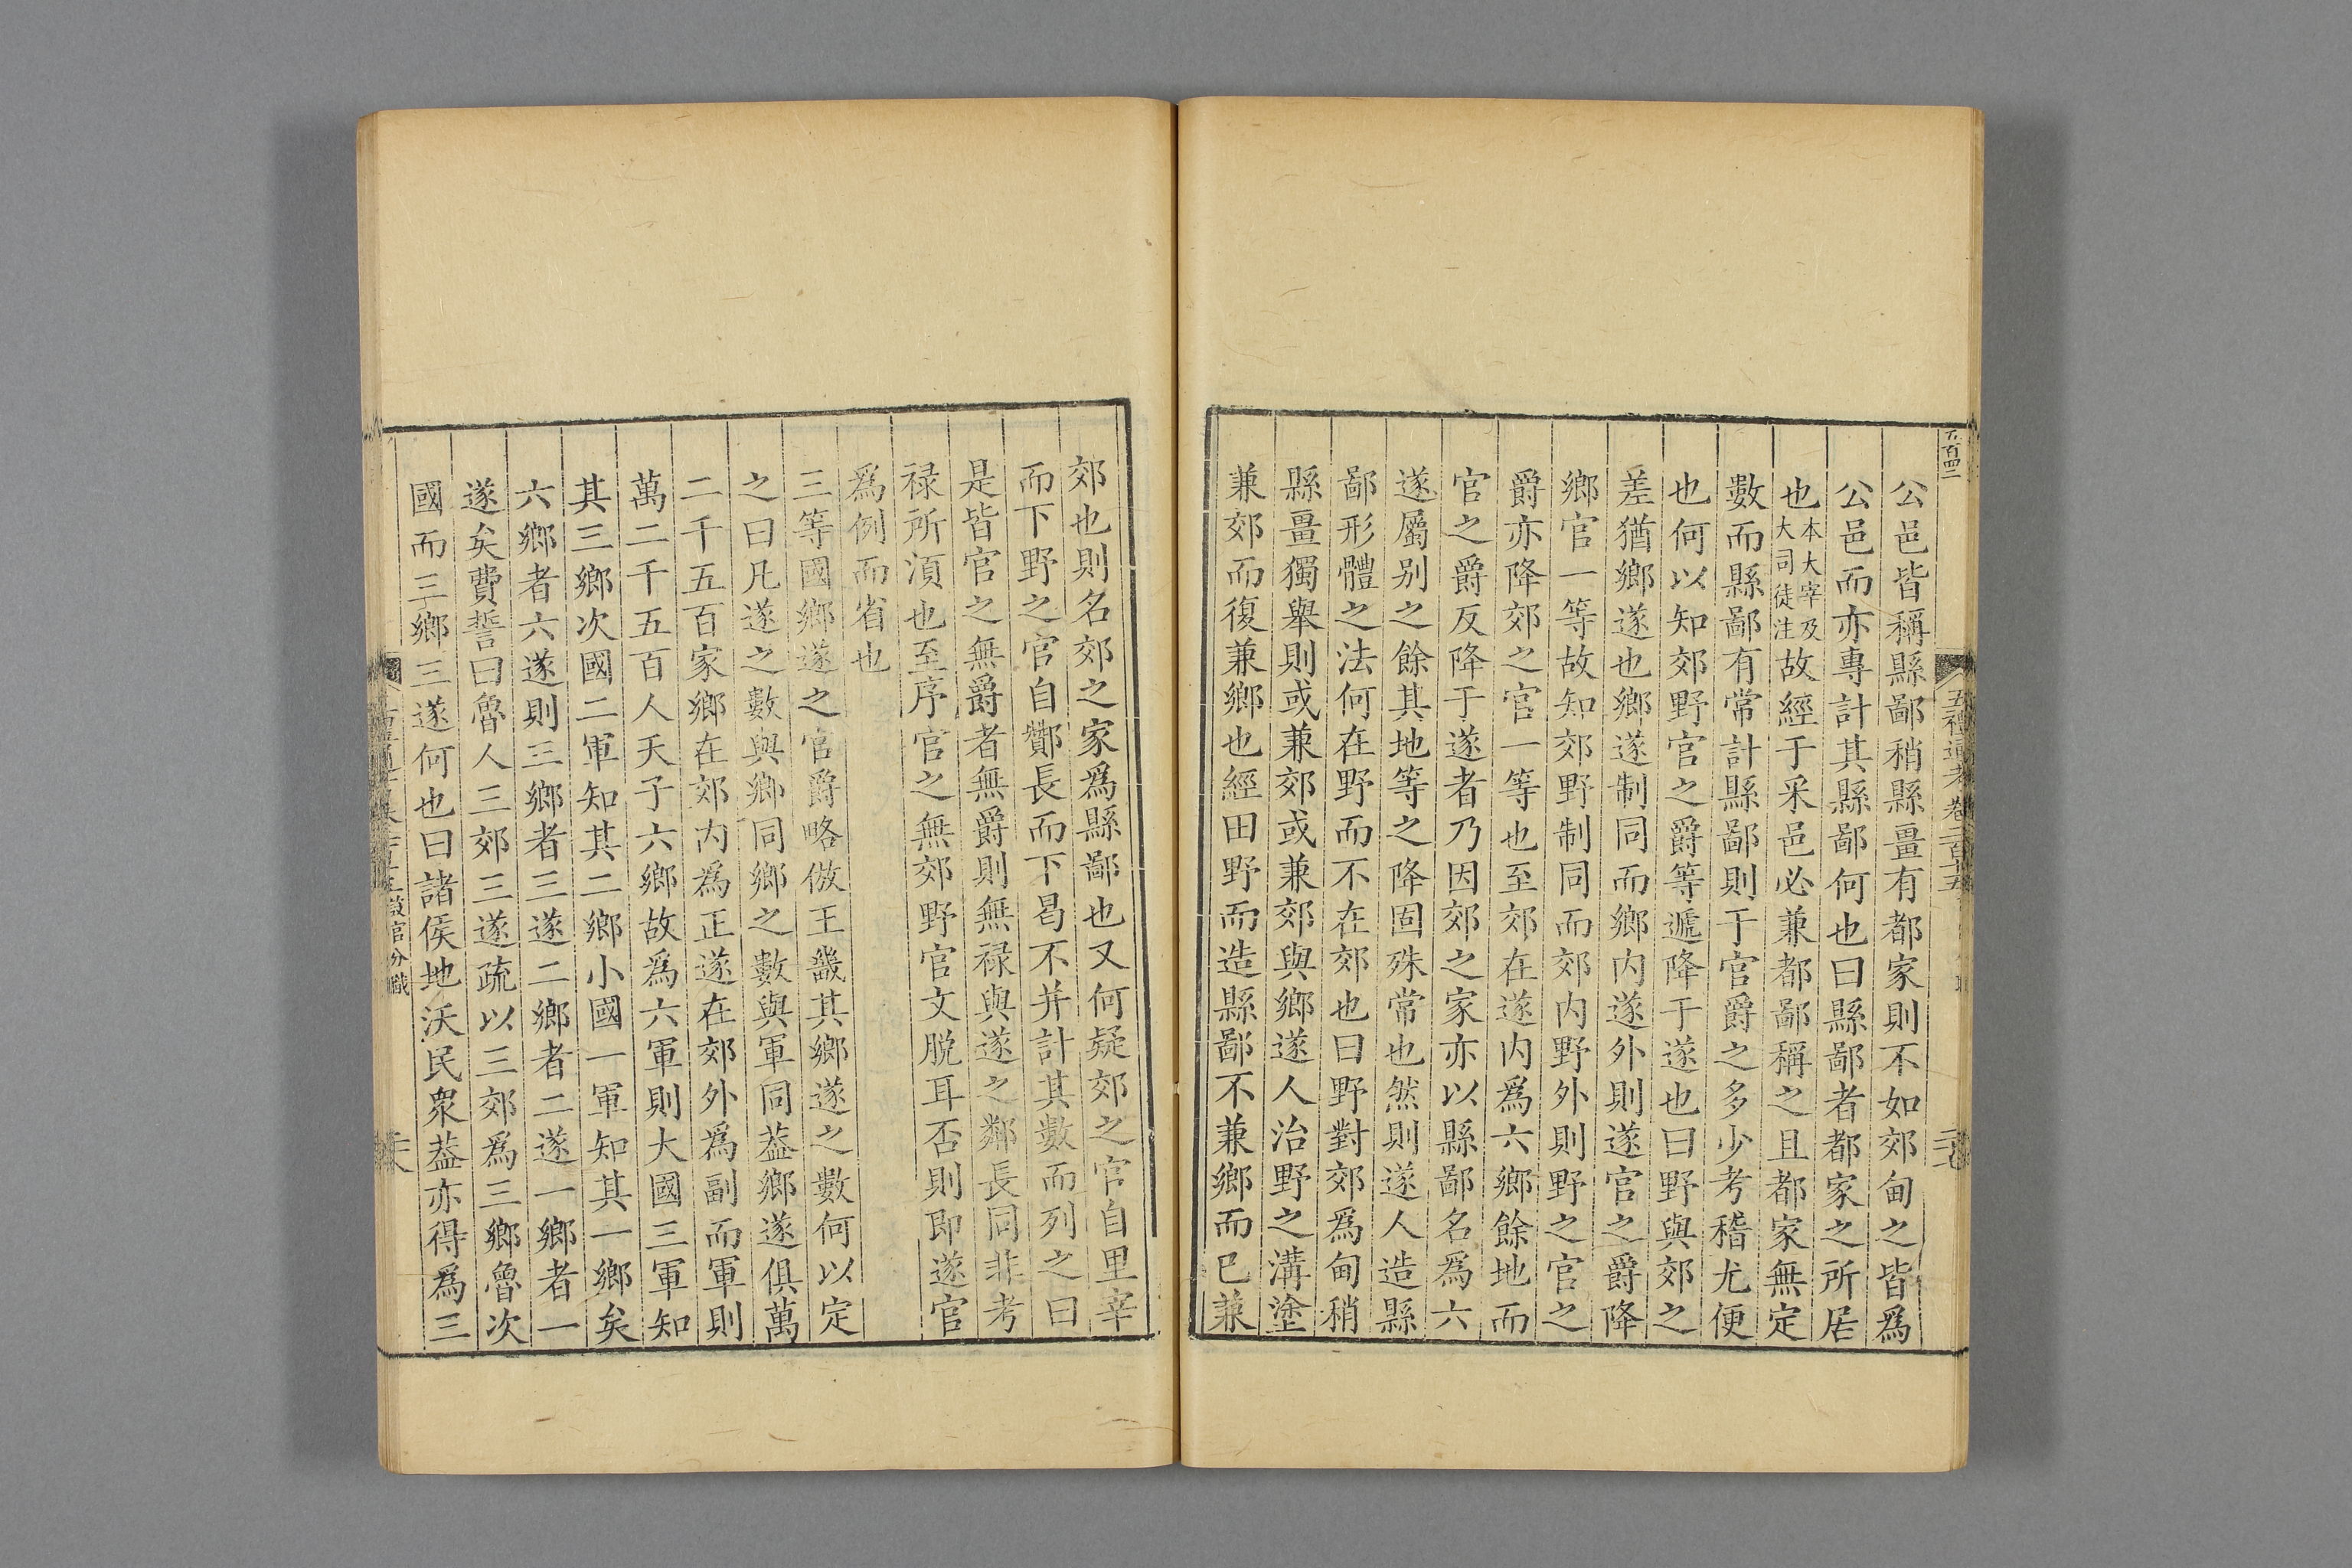 公邑皆稱縣鄙稍縣畺有都家則不如郊甸之皆爲
公邑而亦專計其縣鄙何也曰縣鄙者都家之所居
也本大宰及大司徒注故經于采邑必兼都鄙稱之且都家無定
數而縣鄙有常計縣鄙則于官爵之多少考稽尤便
也何以知郊野官之爵等遞降于遂也曰野與郊之
差猶鄉遂也鄉遂制同而鄉内遂外則遂官之爵降
鄉官一等故知郊野制同而郊内野外則野之官之
爵亦降郊之官一等也至郊在遂内爲六鄉餘地而
官之爵反降于遂者乃因郊之家亦以縣鄙名爲六
遂屬别之餘其地等之降固殊常也然則遂人造縣
鄙形體之法何在野而不在郊也曰野對郊爲甸稍
縣畺獨舉則或兼郊或兼郊與鄉遂人治野之溝塗
兼郊而復兼鄉也經田野而造縣鄙不兼鄉而已兼
郊也則名郊之家爲縣鄙也又何疑郊之官自里宰
而下野之官自酇長而下曷不并計其數而列之曰
是皆官之無爵者無爵則無禄與遂之鄰長同非考
禄所湏也至序官之無郊野官文脱耳否則即遂官
爲例而省也
三等國鄉遂之官爵略倣王畿其鄉遂之數何以定
之曰凡遂之數與鄉同鄉之數與軍同葢鄉遂俱萬
二千五百家鄉在郊内爲正遂在郊外爲副而軍則
萬二千五百人天子六鄉故爲六軍則大國三軍知
其三鄉次國二軍知其二鄉小國一軍知其一鄉矣
六鄉者六遂則三鄉者三遂二鄉者二遂一鄉者一
遂矣費誓曰魯人三郊三遂疏以三郊爲三鄉魯次
國而三鄉三遂何也曰諸侯地沃民衆葢亦得爲三